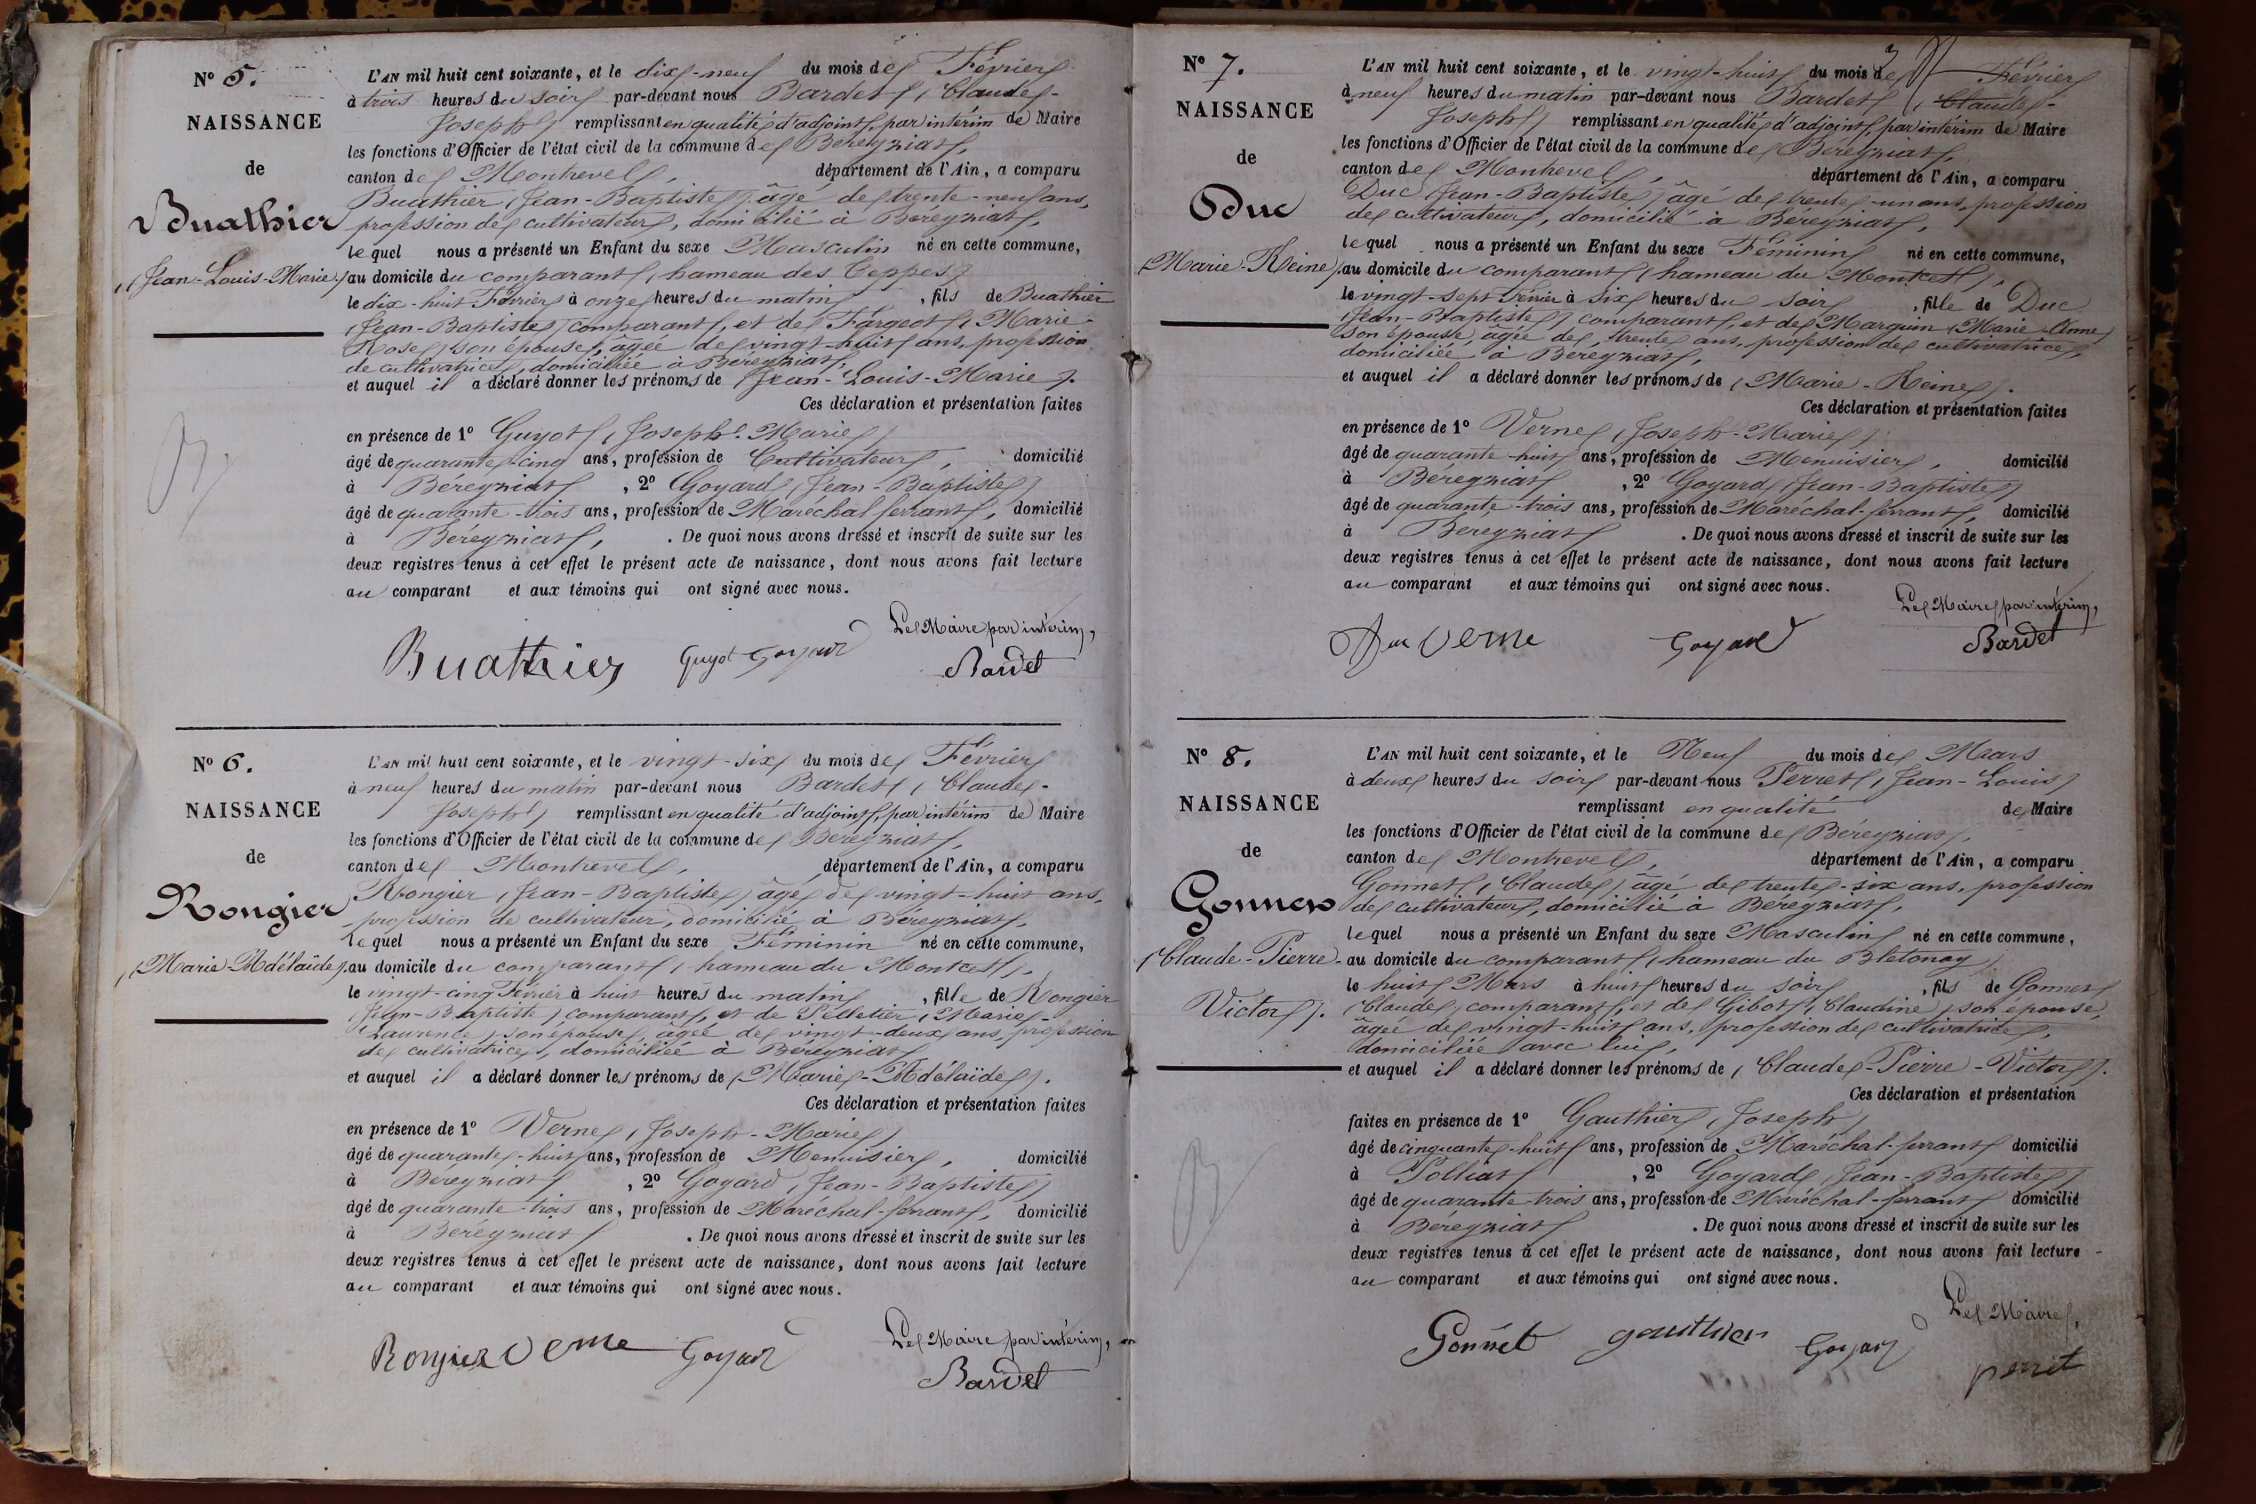 N° 5.
NAISSANCE
de
Buathier
(Jean-Louis-Marie)
L'AN mil huit cent soixante, et le dix-neuf du mois de Février
à trois heures du soir par-devant nous Bardet (Claude-
Joseph) remplissant en qualité d'adjoint, par intérim de Maire
les fonctions d'Officier de l'état civil de la commune de Béréyziat,
canton de Montrevel, département de l'Ain, a comparu
Buathier (Jean-Baptiste) âgé de trente-neuf ans,
profession de cultivateur, domicilié à Béréyziat,
lequel nous a présenté un Enfant du sexe Masculin né en cette commune,
au domicile du comparant (hameau des Teppes)
le dix-huit Février à onze heures du matin, fils de Buathier
(Jean-Baptiste) comparant, et de Fargeot (Marie-
Rose) son épouse, âgée de vingt-huit ans, profession
de cultivatrice, domiciliée à Béréyziat,
et auquel il a déclaré donner les prénoms de (Jean-Louis-Marie).
Ces déclaration et présentation faites
en présence de 1° Guyot (Joseph-Marie)
âgé de quarante-cinq ans, profession de Cultivateur, domicilié
à Béréyziat, 2° Goyard (Jean-Baptiste)
âgé de quarante-trois ans, profession de Maréchal ferrant, domicilié
à Béréyziat, . De quoi nous avons dressé et inscrit de suite sur les
deux registres tenus à cet effet le présent acte de naissance, dont nous avons fait lecture
au comparant et aux témoins qui ont signé avec nous.
Le Maire par intérim,
Buathier Guyot Goyard Bardet
N° 6.
NAISSANCE
de
Rongier
(Marie-Adélaïde)
L'AN mil huit cent soixante, et le vingt-six du mois de Février
à neuf heures du matin par-devant nous Bardet (Claude-
Joseph) remplissant en qualité d'adjoint, par intérim de Maire
les fonctions d'Officier de l'état civil de la commune de Béréyziat,
canton de Montrevel, département de l'Ain, a comparu
Rongier (Jean-Baptiste) âgé de vingt-huit ans,
profession de cultivateur, domicilié à Béréyziat,
lequel nous a présenté un Enfant du sexe Féminin né en cette commune,
au domicile du comparant (hameau du Montcet),
le vingt-cinq Février à huit heures du matin, fille de Rongier
(Jean-Baptiste) comparant, et de Pelletier (Marie-
Laurence) son épouse, âgée de vingt-deux ans, profession
de cultivatrice, domiciliée à Béréyziat
et auquel il a déclaré donner les prénoms de (Marie-Adélaïde).
Ces déclaration et présentation faites
en présence de 1° Verne (Joseph-Marie)
âgé de quarante-huit ans, profession de Menuisier, domicilié
à Béréyziat, 2° Goyard (Jean-Baptiste)
âgé de quarante-trois ans, profession de Maréchal-ferrant, domicilié
à Béréyziat . De quoi nous avons dressé et inscrit de suite sur les
deux registres tenus à cet effet le présent acte de naissance, dont nous avons fait lecture
au comparant et aux témoins qui ont signé avec nous.
Le Maire par intérim,
Rongier Verne Goyard Bardet
3
N° 7.
NAISSANCE
de
Duc
(Marie-Reine)
L'AN mil huit cent soixante, et le vingt-huit du mois de Février
à neuf heures du matin par-devant nous Bardet (Claude-
Joseph) remplissant en qualité d'adjoint, par intérim de Maire
les fonctions d'Officier de l'état civil de la commune de Béréyziat,
canton de Montrevel, département de l'Ain, a comparu
Duc (Jean-Baptiste) âgé de trente-un ans, profession
de cultivateur, domicilié à Béréyziat,
lequel nous a présenté un Enfant du sexe Féminin né en cette commune,
au domicile du comparant (hameau du Montcet),
le vingt-sept Février à six heures du soir, fille de Duc
(Jean-Baptiste) comparant, et de Marguin (Marie-Anne)
son épouse, âgée de trente ans, profession de cultivatrice,
domiciliée à Béréyziat,
et auquel il a déclaré donner les prénoms de (Marie-Reine).
Ces déclaration et présentation faites
en présence de 1° Verne (Joseph-Marie)
âgé de quarante-huit ans, profession de Menuisier, domicilié
à Béréyziat, 2° Goyard (Jean-Baptiste)
âgé de quarante-trois ans, profession de Maréchal-ferrant, domicilié
à Béréyziat . De quoi nous avons dressé et inscrit de suite sur les
deux registres tenus à cet effet le présent acte de naissance, dont nous avons fait lecture
au comparant et aux témoins qui ont signé avec nous.
Le Maire par intérim,
Duc Verne Goyard Bardet
N° 8.
NAISSANCE
de
Gonnet
(Claude-Pierre-
Victor).
L'AN mil huit cent soixante, et le Neuf du mois de Mars
à deux heures du soir par-devant nous Perret (Jean-Louis)
remplissant en qualité de Maire
les fonctions d'Officier de l'état civil de la commune de Béréyziat,
canton de Montrevel, département de l'Ain, a comparu
Gonnet (Claude) âgé de trente-six ans, profession
de cultivateur, domicilié à Béréyziat,
lequel nous a présenté un Enfant du sexe Masculin né en cette commune,
au domicile du comparant (hameau du Bletonay)
le huit Mars à huit heures du soir, fils de Gonnet
(Claude) comparant, et de Gibot (Claudine) son épouse,
âgée de vingt-huit ans, profession de cultivatrice,
domiciliée avec lui,
et auquel il a déclaré donner les prénoms de (Claude-Pierre-Victor).
Ces déclaration et présentation
faites en présence de 1° Gauthier (Joseph)
âgé de cinquante-huit ans, profession de Maréchal-ferrant domicilié
à Polliat, 2° Goyard (Jean-Baptiste)
âgé de quarante-trois ans, profession de Maréchal-ferrant domicilié
à Béréyziat . De quoi nous avons dressé et inscrit de suite sur les
deux registres tenus à cet effet le présent acte de naissance, dont nous avons fait lecture
au comparant et aux témoins qui ont signé avec nous.
Le Maire,
Gonnet gauthier Goyard perret